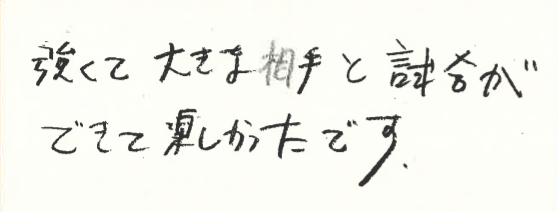 強くて大きな相手と試合が
できて楽しかったです.